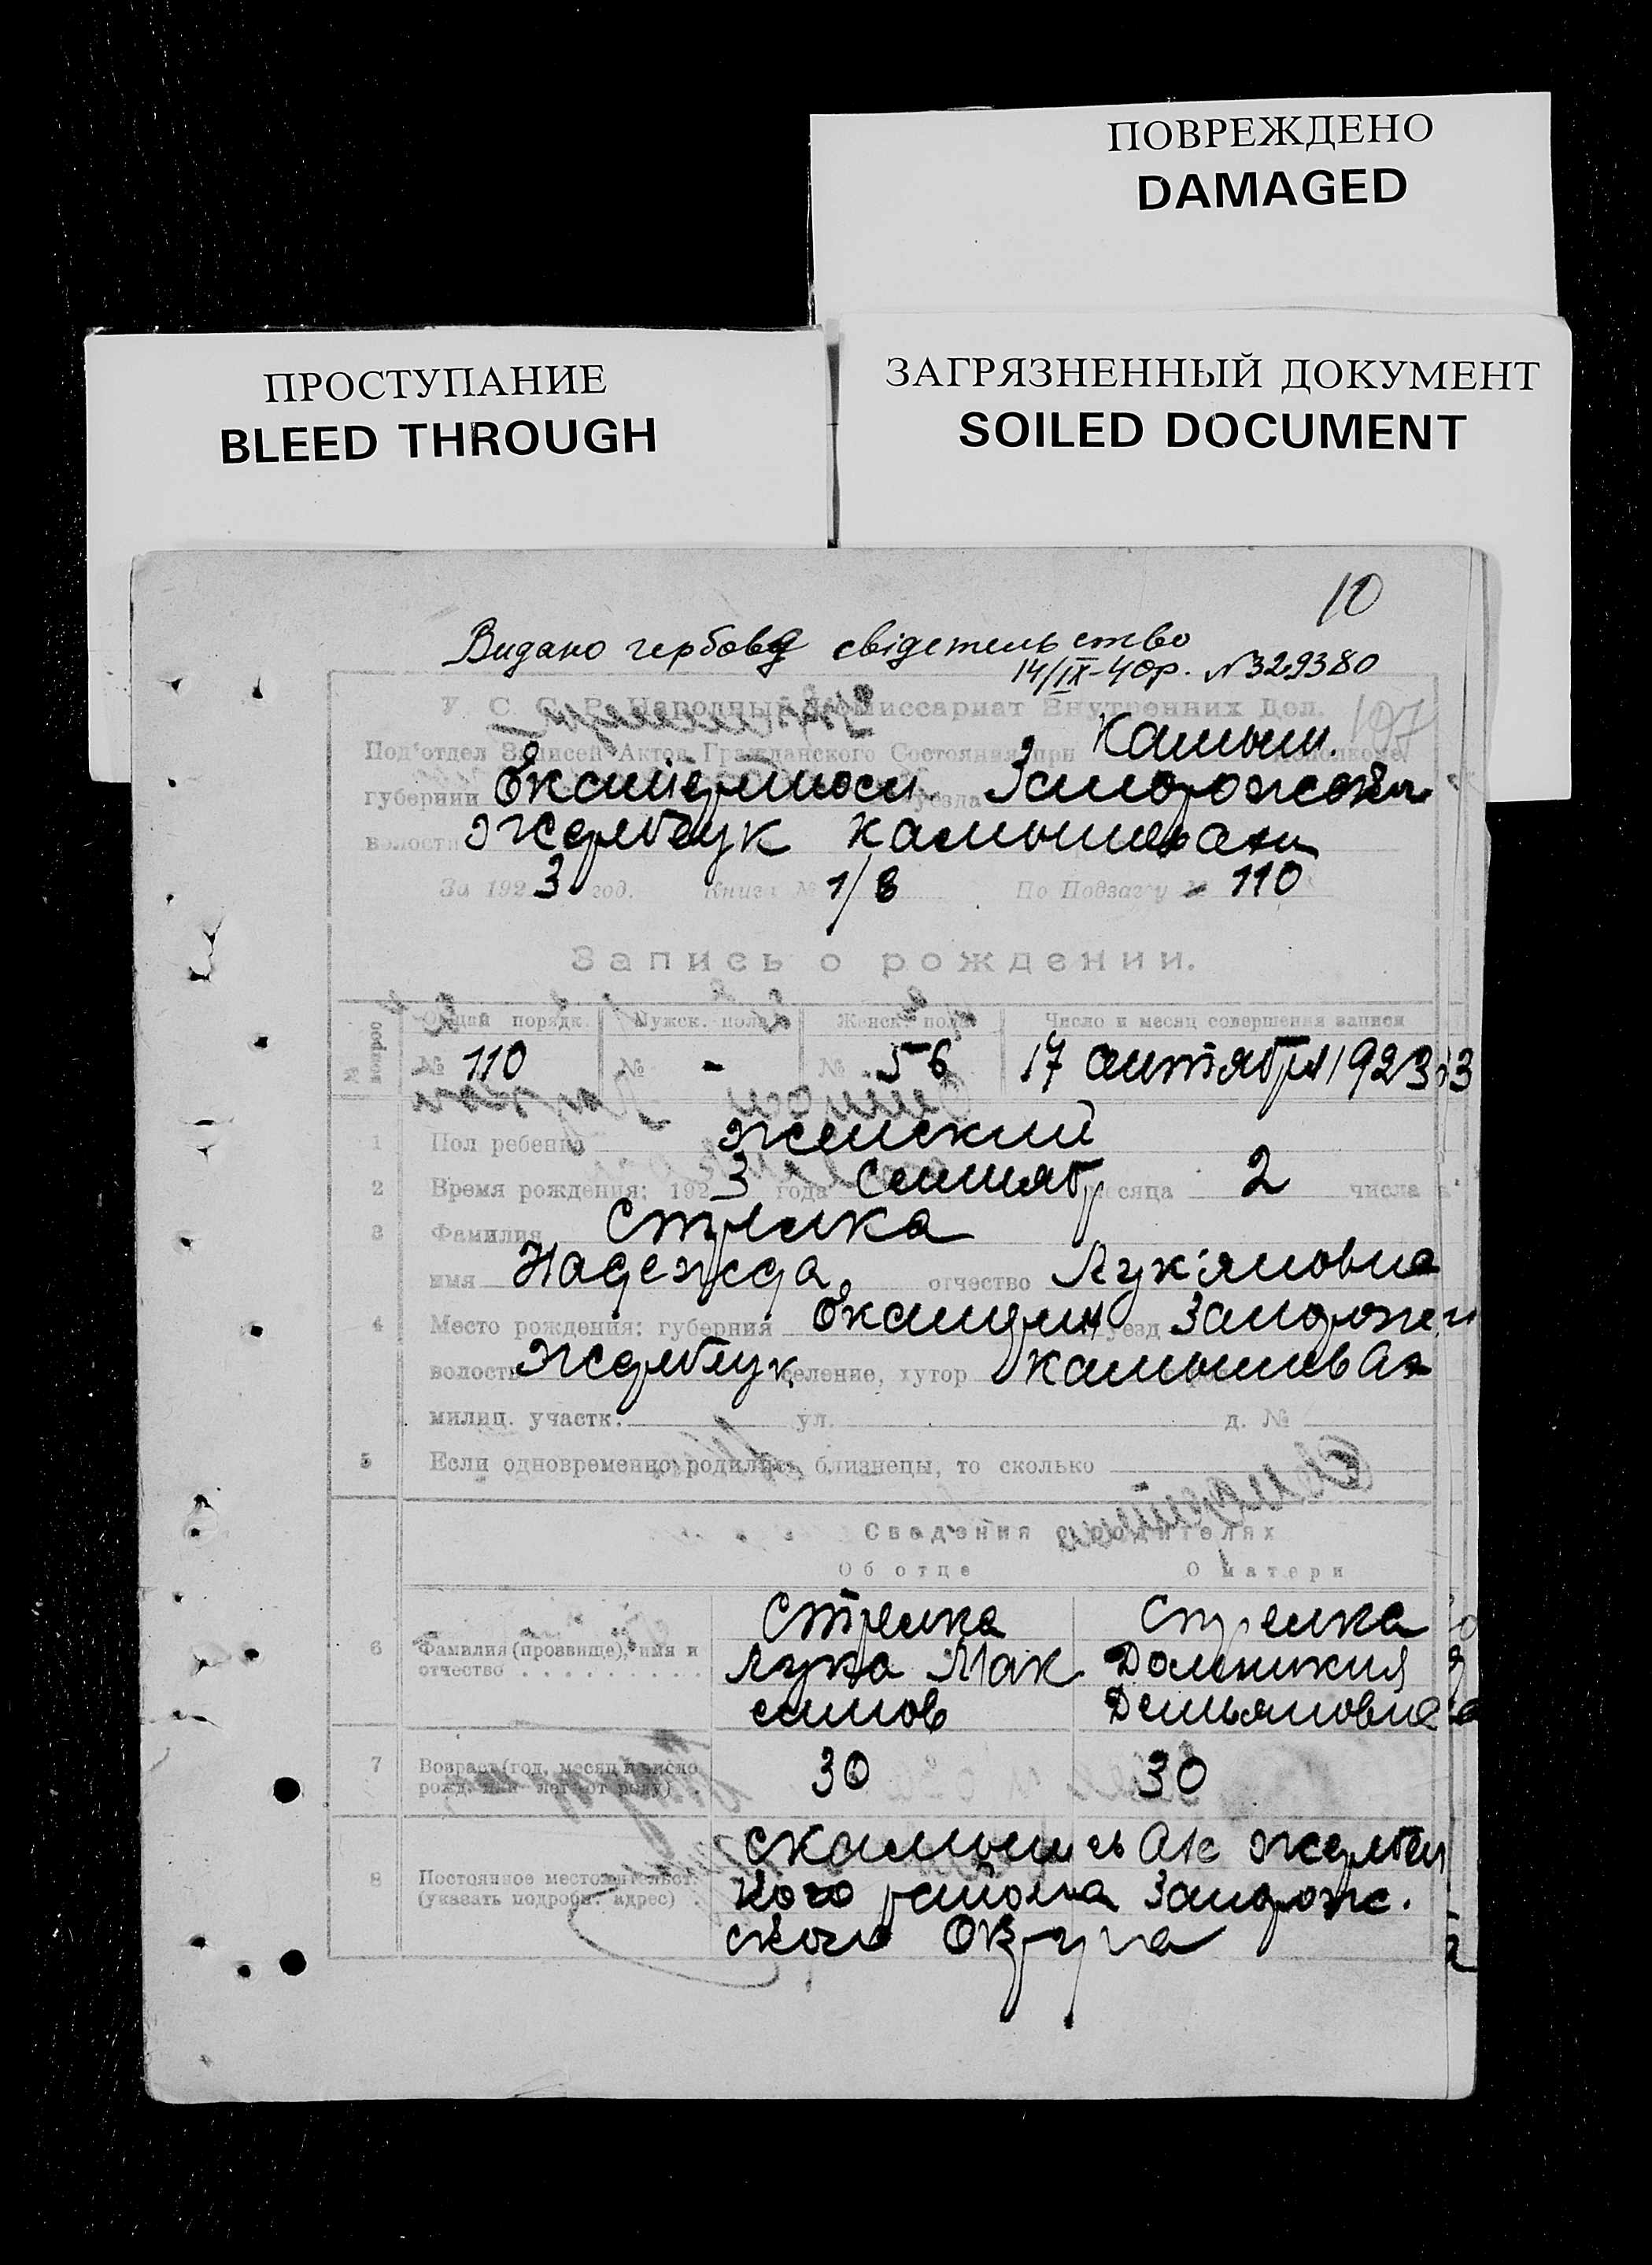 ПОВРЕЖДЕНО
DAMAGED
ПРОСТУПАНИЕ
BLEED THROUGH
ЗАГРЯЗНЕННЫЙ ДОКУМЕНТ
SOILED DOCUMENT
10
Видано гербове свідетельство
14/IX-40р. №329380
У. С. С. Р. Народный Комиссариат Внутренних Дел.
107
Под'отдел Записей Актов Гражданского Состояния при Камыш.
губернии уезда
волости Жеребецк
За 1923 год. Книга № 1/8 По Подзагсу 110
Запись о рождении.
№ вопрос
Общий порядк. Мужск. пола Женск. пола Число и месяц совершения записи
№ 110 № - № 56 17 сентября 1923
1 Пол ребенка женский
2 Время рождения: 1923 года Сентяб месяца 2 числа
3 Фамилия Стрелка
имя Надежда отчество Лук'яновна
4 Место рождения: губерния уезд
волость селение, хутор Камышевах
милиц. участк. ул. д. №
5 Если одновременно родились близнецы, то сколько
Сведения о родителях
Об отце О матери
6 Фамилия (прозвище), имя и отчество
Стрелка Стрелка
Лука Мак Домникия
симов Демьяновна
7 Возраст (год, месяц и число рожд. или лет от роду) 30 30
8 Постоянное местожительст. (указать подробн. адрес)
кого района Запорож.
ского Округа